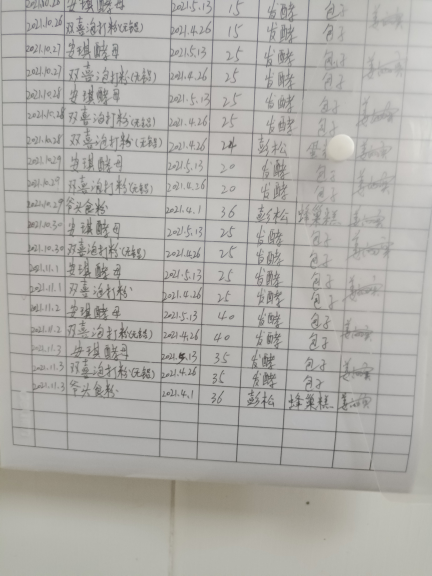 2021.10.26 安琪酵母 2021.5.13 15 发酵 包子
2021.10.26 双喜泡打粉(无铝) 2021.4.26 15 发酵 包子
2021.10.27 安琪酵母 2021.5.13 25 发酵 包子
2021.10.27 双喜泡打粉(无铝) 2021.4.26 25 发酵 包子
2021.10.28 安琪酵母 2021.5.13 25 发酵 包子
2021.10.28 双喜泡打粉(无铝) 2021.4.26 25 发酵 包子
2021.10.28 双喜泡打粉(无铝) 2021.4.26 24 彭松
2021.10.29 安琪酵母 2021.5.13 20 发酵 包子
2021.10.29 双喜泡打粉(无铝) 2021.4.26 20 发酵 包子
2021.10.29 斧头食粉 2021.4.1 36 彭松 蜂巢糕
2021.10.30 安琪酵母 2021.5.13 25 发酵 包子
2021.10.30 双喜泡打粉(无铝) 2021.4.26 25 发酵 包子
2021.11.1 安琪酵母 2021.5.13 25 发酵 包子
2021.11.1 双喜泡打粉 2021.4.26 25 发酵 包子
2021.11.2 安琪酵母 2021.5.13 40 发酵 包子
2021.11.2 双喜泡打粉(无铝) 2021.4.26 40 发酵 包子
2021.11.3 安琪酵母 2021.5.13 35 发酵 包子
2021.11.3 双喜泡打粉(无铝) 2021.4.26 35 发酵 包子
2021.11.3 斧头食粉 2021.4.1 36 彭松 蜂巢糕